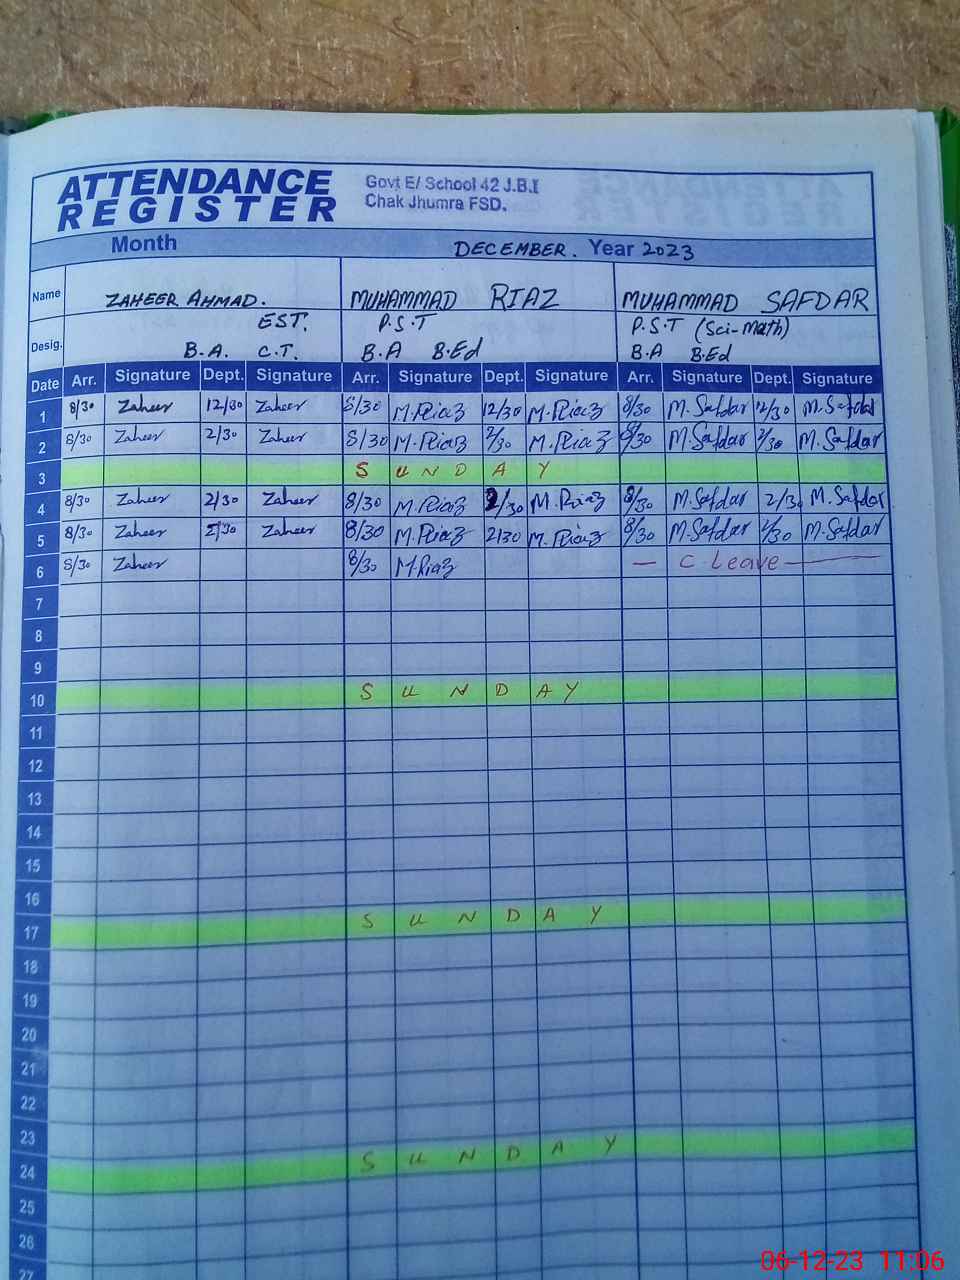 ATTENDANCE
REGISTER
Govt E/ School 42 J.B.I
Chak Jhumra FSD.
Month DECEMBER. Year 2023
Name ZAHEER AHMAD. MUHAMMAD RIAZ MUHAMMAD SAFDAR
EST. P.S.T P.S.T (Sci-math)
Desig. B.A. C.T. B.A B.Ed B.A B.Ed
Date Arr. Signature Dept. Signature Arr. Signature Dept. Signature Arr. Signature Dept. Signature
1 8/30 Zaheer 12/30 Zaheer 8/30 M.Riaz 12/30 M.Riaz 8/30 M.Safdar 12/30 M.Safdar
2 8/30 Zaheer 2/30 Zaheer 8/30 M.Riaz 2/30 M.Riaz 8/30 M.Safdar 2/30 M.Safdar
3 SUNDAY
4 8/30 Zaheer 2/30 Zaheer 8/30 M.Riaz 2/30 M.Riaz 8/30 M.Safdar 2/30 M.Safdar
5 8/30 Zaheer 2/30 Zaheer 8/30 M.Riaz 2/30 M.Riaz 8/30 M.Safdar 2/30 M.Safdar
6 8/30 Zaheer 8/30 M.Riaz — C Leave —
7
8
9
10 SUNDAY
11
12
13
14
15
16
17 SUNDAY
18
19
20
21
22
23
24 SUNDAY
25
26
27
06-12-23 11:06